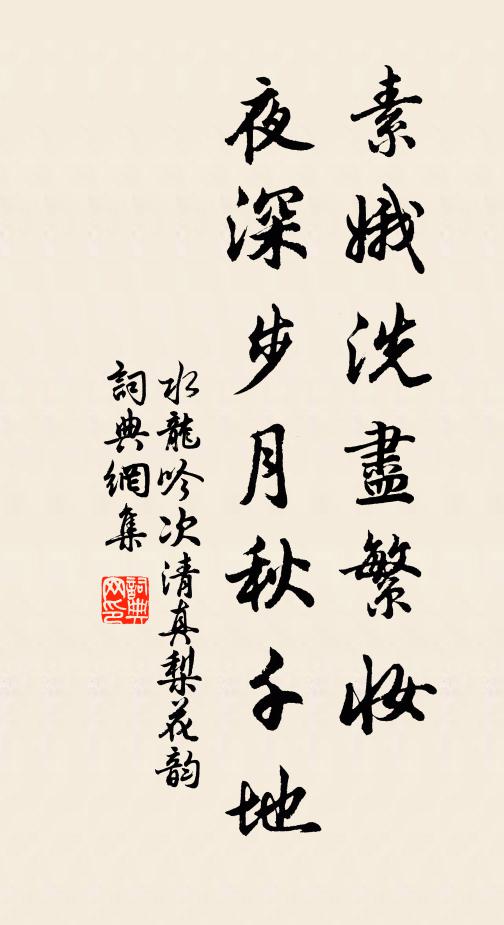 素娥洗盡繁妝
夜深步月秋千地
水龍吟次清真梨花韵
詞典網集
詞典網印